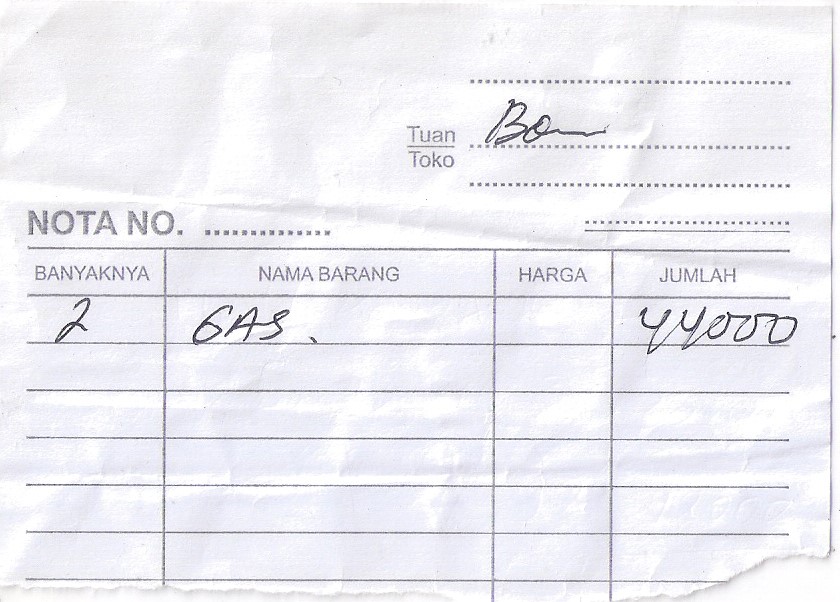 Tuan
Toko
NOTA NO.
BANYAKNYA NAMA BARANG HARGA JUMLAH
2 GAS. 44000